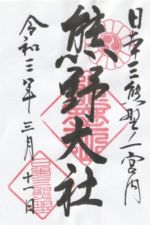 日本三熊野之一宮内
熊野大社
令和三年三月十一日